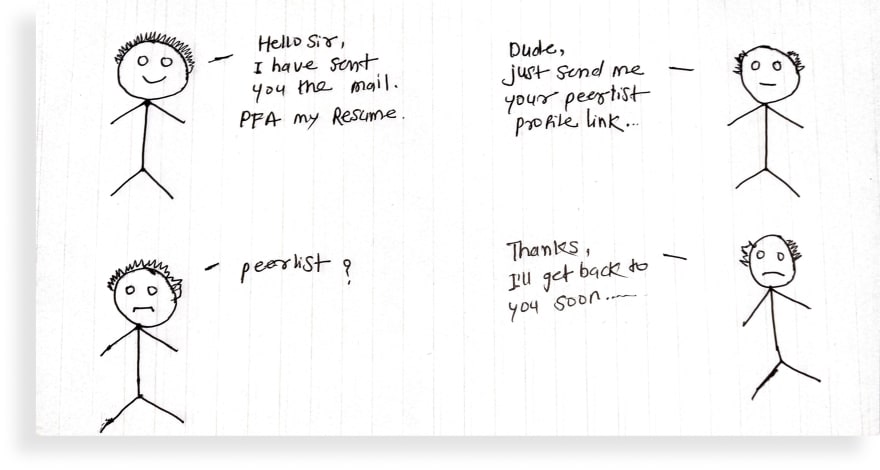 Hello Sir,
I have sent
you the mail.
PFA my Resume.
Dude,
just send me
your peerlist
profile link...
peerlist ?
Thanks,
I'll get back to
you soon......